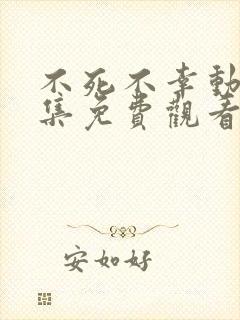 不死不幸動
集免費觀看
安如好